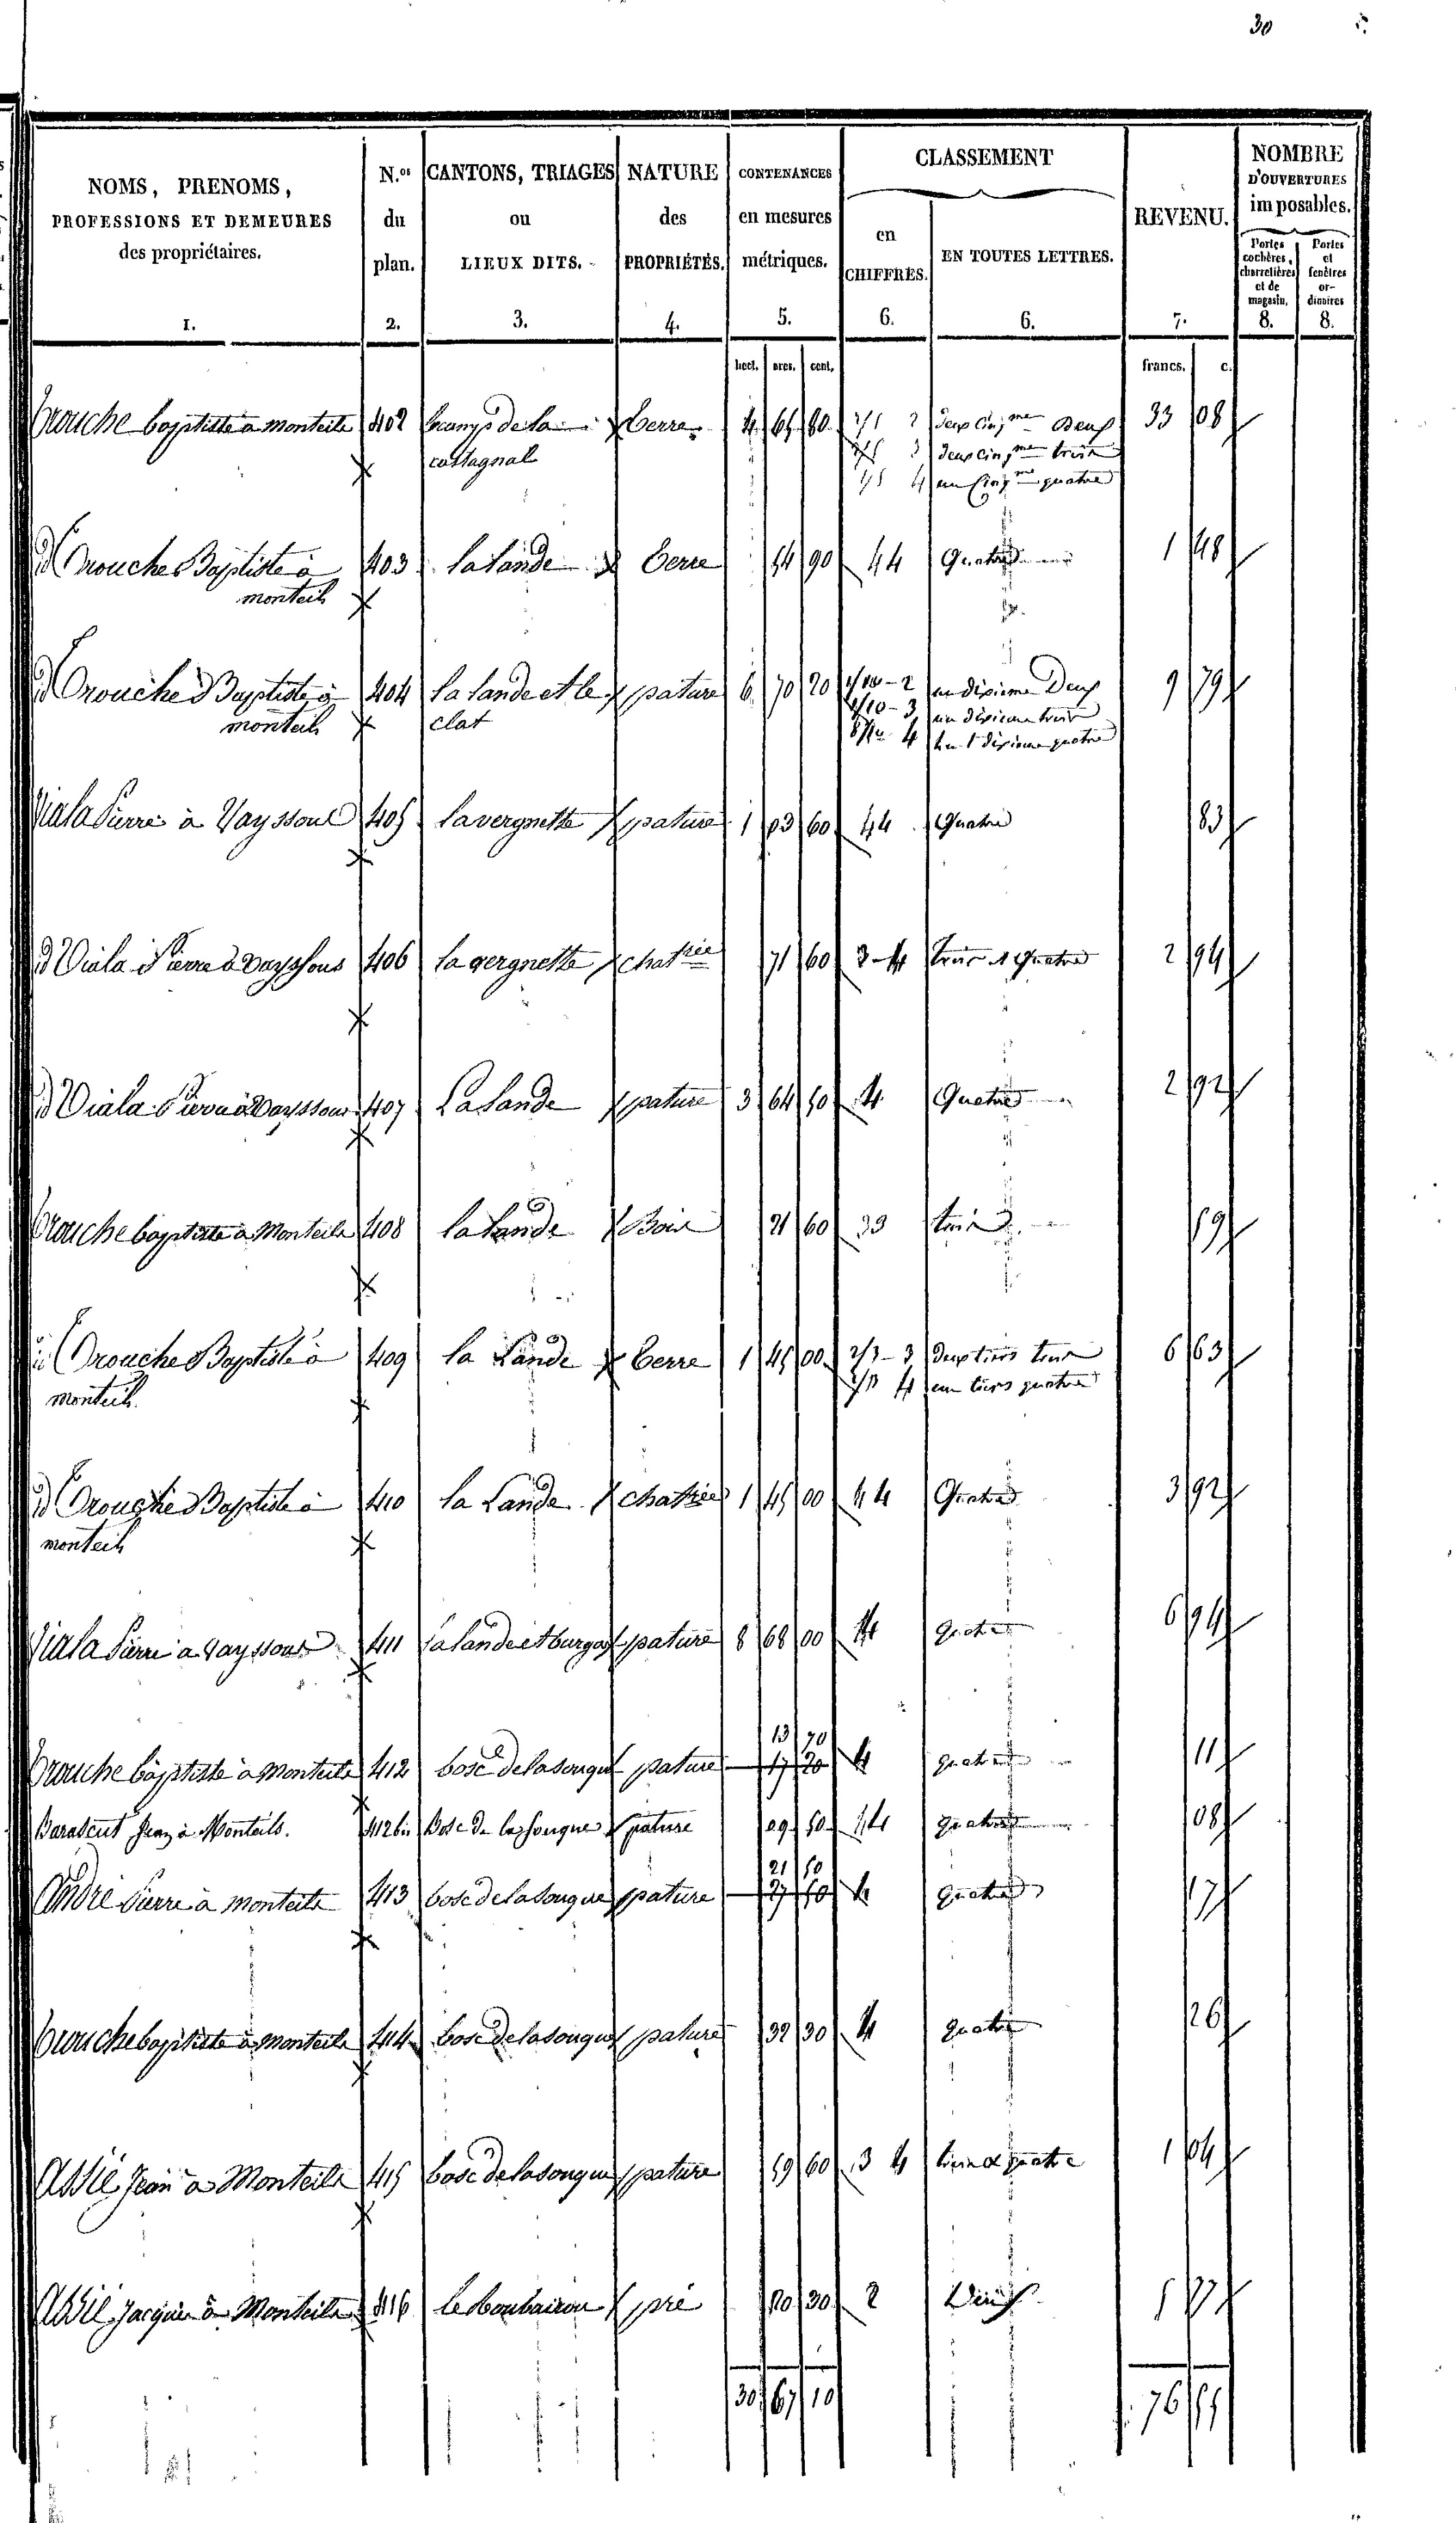 30
NOMS, PRENOMS,
PROFESSIONS ET DEMEURES
des propriétaires.
1.
N.os
du
plan.
2.
CANTONS, TRIAGES
ou
LIEUX DITS.
3.
NATURE
des
PROPRIÉTÉS.
4.
CONTENANCES
en mesures
métriques.
5.
CLASSEMENT
en
CHIFFRES.
6.
EN TOUTES LETTRES.
6.
REVENU.
7.
NOMBRE
D'OUVERTURES
imposables.
Portes
cochères,
charretières
et de
magasin.
8.
Portes
et
fenêtres
or-
dinaires
8.
hect. ares. cent. francs. c.
Trouche baptiste à monteils 402 de la terre 4 65 80 2/5 2 deux cinqme Deux 33 08
castagnal 2/5 3 deux cinqme trois
1/5 4 un cinqme quatre
d Trouche Baptiste à 403 la lande terre 54 90 44 Quatre 1 48
monteils
d Trouche Baptiste à 404 la lande et le pature 6 70 20 1/10 - 2 un dixieme Deux 9 79
monteils clat 1/10 - 3 un dixieme trois
8/10 4 huit dixieme quatre
Viala Pierre à Vayssous 405 la vergnette pature 1 03 60 44 Quatre 83
d Viala Pierre à Vayssous 406 la vergnette chatrée 71 60 3-4 trois et Quatre 2 94
d Viala Pierre à Vayssous 407 La Lande pature 3 64 50 4 Quatre 2 92
Trouche baptiste à Monteils 408 la lande Bois 21 60 33 trois 59
d Trouche Baptiste à 409 la Lande terre 1 45 00 2/3 - 3 deux tiers trois 6 63
monteils. 1/3 4 un tiers quatre
d Trouche Baptiste à 410 la Lande chatrée 1 45 00 44 Quatre 3 92
monteils
Viala Pierre à Vayssous 411 la lande et burgas pature 8 68 00 4 quatre 6 94
13 70
Trouche baptiste à Monteils 412 bosc de la sougue pature 17 20 4 quatre 11
Barascut Jean à Monteils. 412 bis Bosc de la sougue pature 09 50 44 quatre 08
21 50
André Pierre à monteils 413 bosc de la sougue pature 27 50 4 quatre 17
Trouche baptiste à monteils 414 bosc de la sougue pature 32 30 4 quatre 26
Assié Jean à Monteils 415 bosc de la sougue pature 59 60 3 4 trois et quatre 1 04
Assié Jacques à Monteils 416 pré 20 30 2 Deux 5 77
30 67 10 76 55